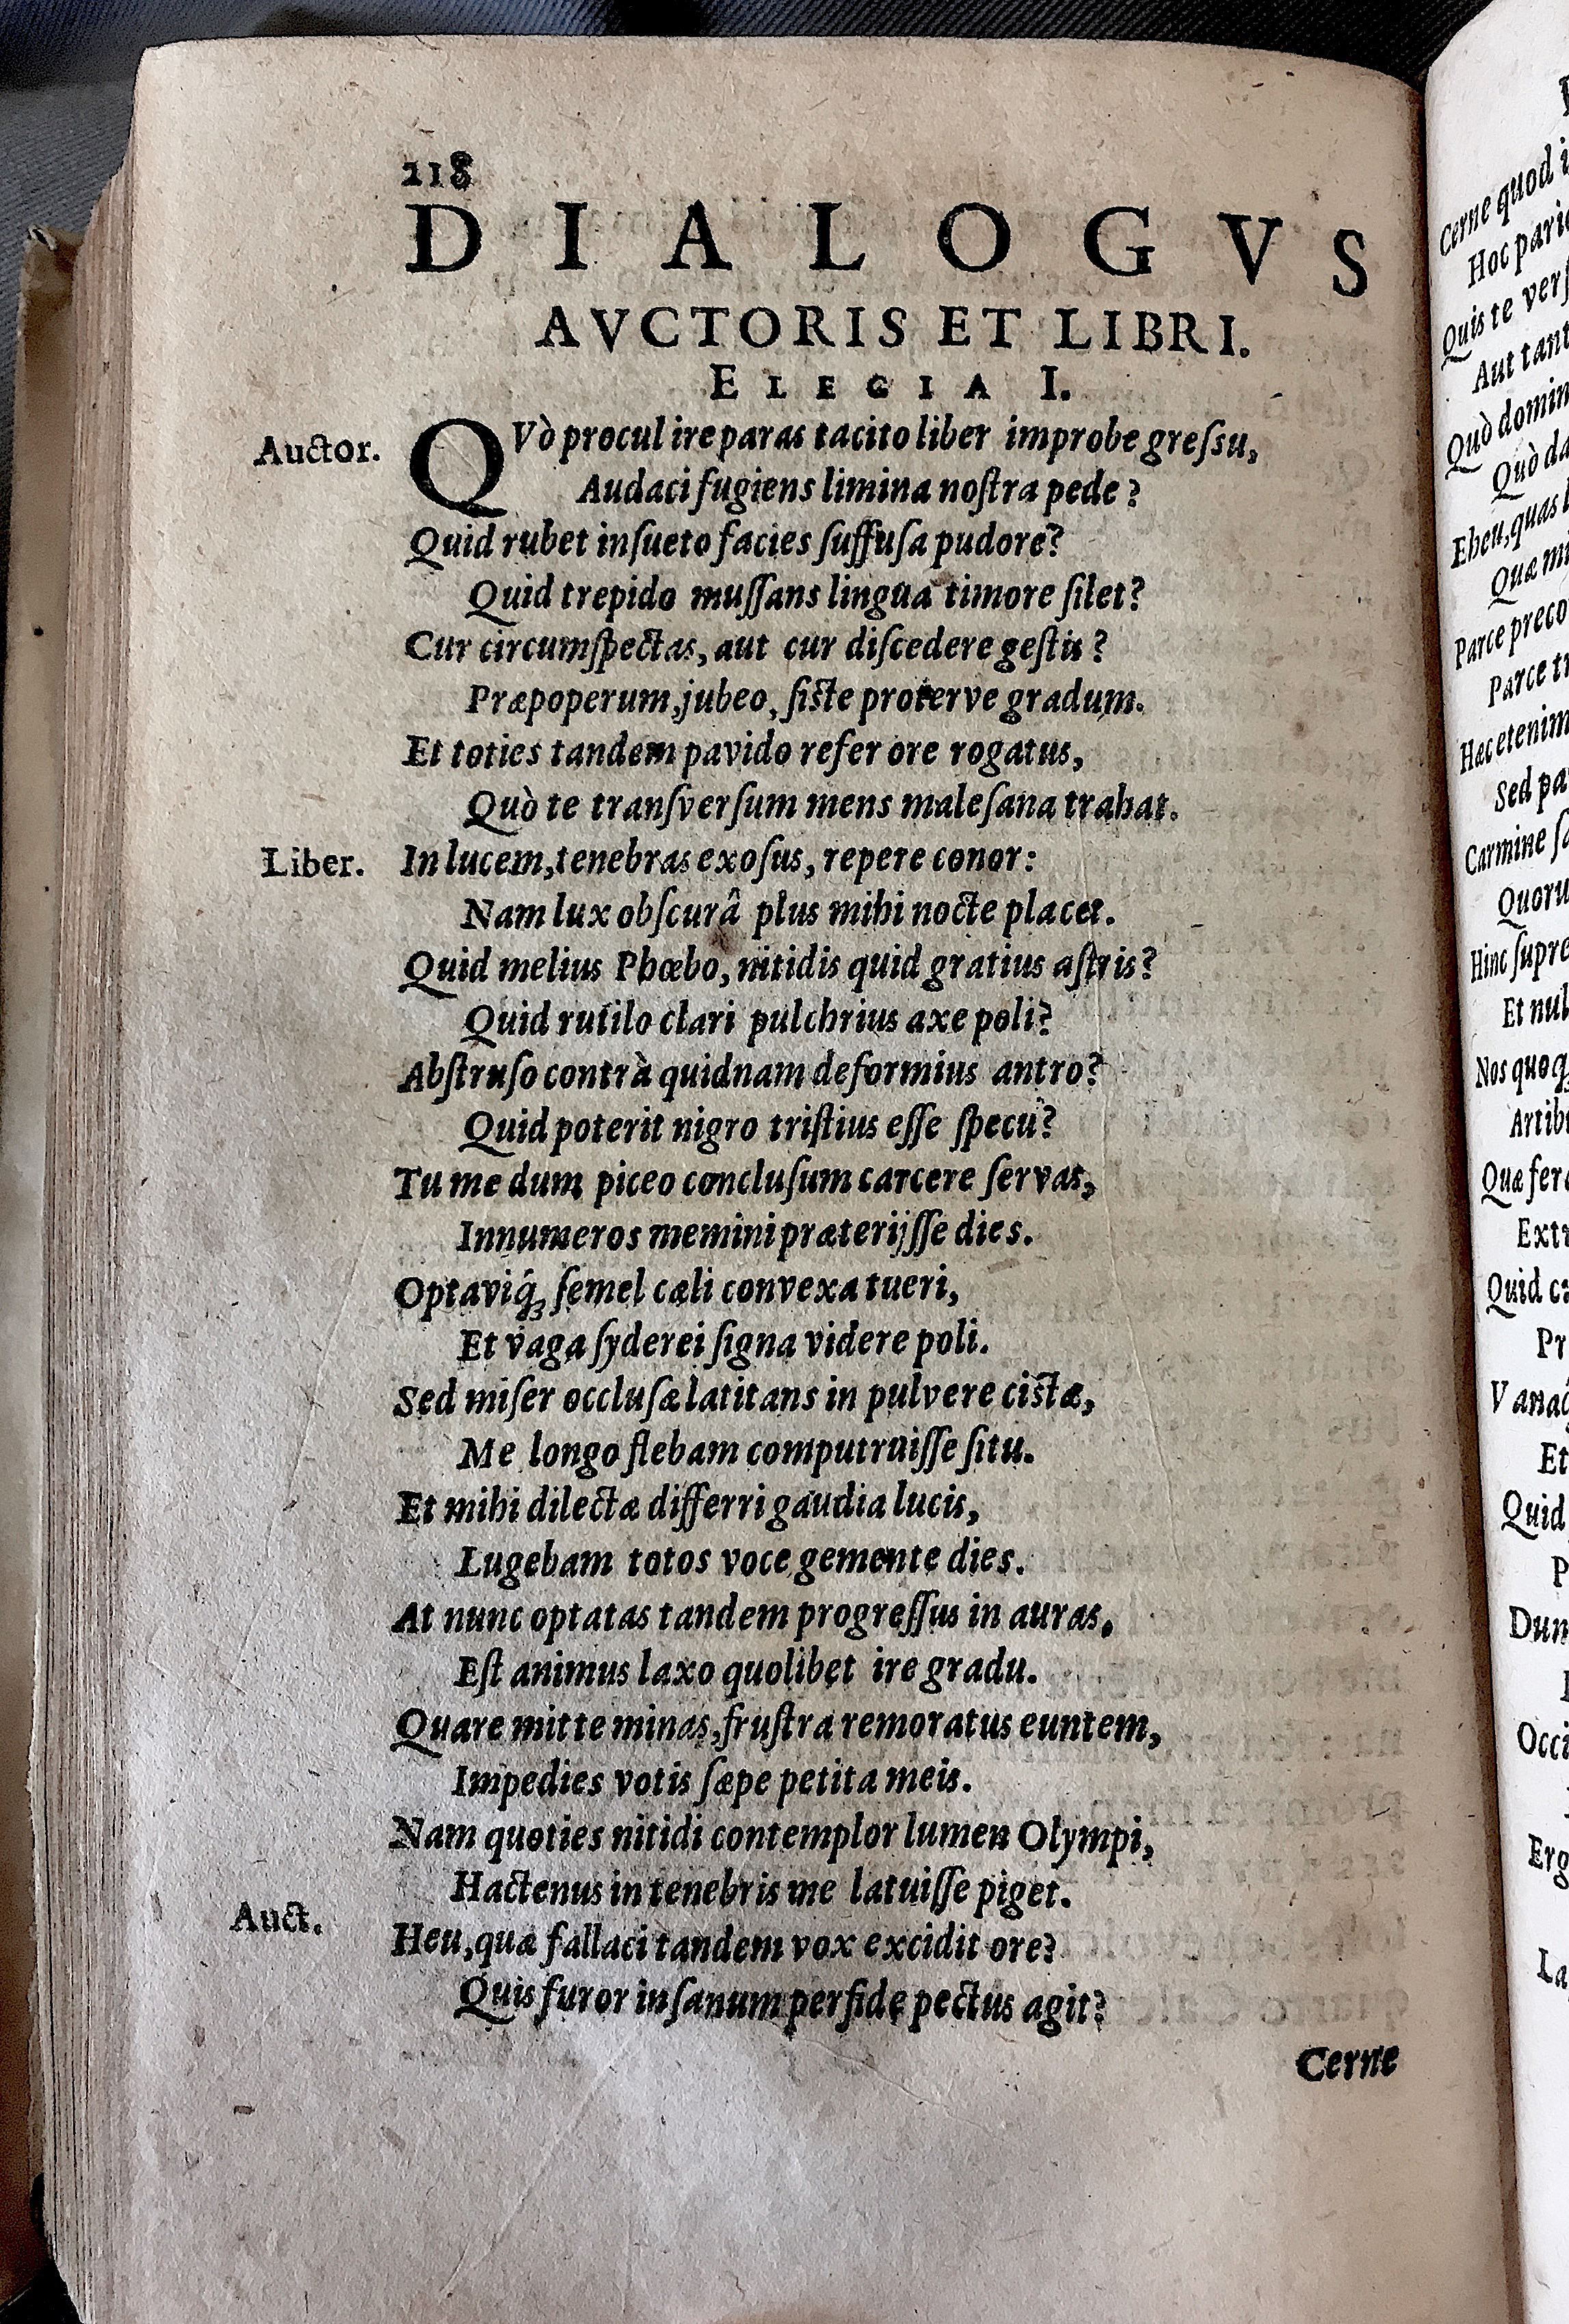 218
DIALOGVS
AVCTORIS ET LIBRI.
ELEGIA I.
Auctor. QVò procul ire paras tacito liber improbe greſsu,
Audaci fugiens limina noſtra pede?
Quid rubet inſueto facies ſuffuſa pudore?
Quid trepido muſſans lingua timore ſilet?
Cur circumſpectas, aut cur diſcedere geſtis?
Præpoperum, jubeo, ſiſte proterve gradum.
Et toties tandem pavido refer ore rogatus,
Quò te tranſverſum mens maleſana trahat.
Liber. In lucem, tenebras exoſus, repere conor:
Nam lux obſcurâ plus mihi nocte placet.
Quid melius Phœbo, nitidis quid gratius aſtris?
Quid rutilo clari pulchrius axe poli?
Abſtruſo contrà quidnam deformius antro?
Quid poterit nigro triſtius eſſe ſpecu?
Tu me dum piceo concluſum carcere ſervas,
Innumeros memini præterijſſe dies.
Optaviq́ꝫ ſemel cæli convexa tueri,
Et vaga ſyderei ſigna videre poli.
Sed miſer occluſæ latitans in pulvere ciſtæ,
Me longo flebam computruiſſe ſitu.
Et mihi dilectæ differri gaudia lucis,
Lugebam totos voce gemente dies.
At nunc optatas tandem progreſſus in auras,
Eſt animus laxo quolibet ire gradu.
Quare mitte minas, fruſtra remoratus euntem,
Impedies votis ſæpe petita meis.
Nam quoties nitidi contemplor lumen Olympi,
Hactenus in tenebris me latuiſſe piget.
Auct. Heu, quæ fallaci tandem vox excidit ore?
Quis furor inſanum perfide pectus agit?
Cerne
Cerne quod
Hoc
Quis te
Aut
Quò
Quò
Eheu, quas
Quæ
Parce
Parce
Hæc etenim
Sed
Carmine
Hinc
Et
Nos
Quid
Et
Quid